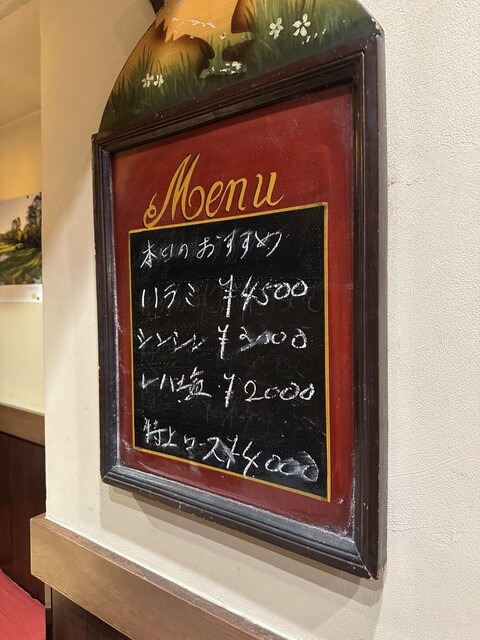 Menu
本日のおすすめ
ハラミ ¥4500
シンシン ¥3000
レバ塩 ¥2000
特上ロース ¥4000